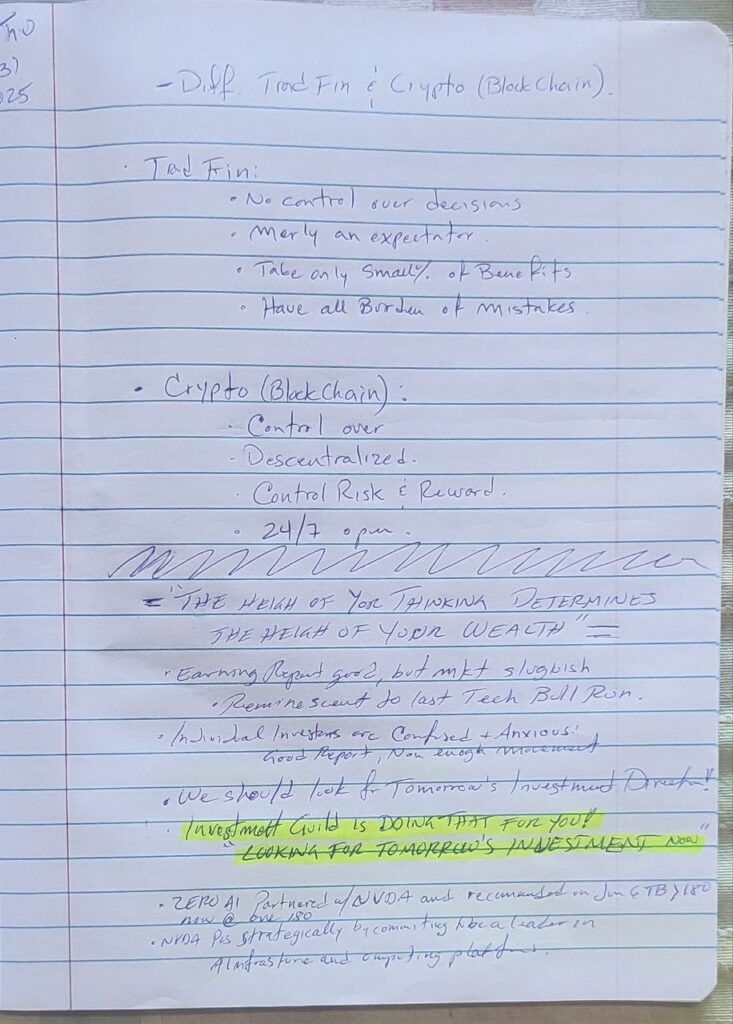 Th.0
3)
025
- Diff. Trad Fin & Crypto (BlockChain).
· Trad Fin:
· No control over decisions
· Merly an expectator.
· Take only Small % of Benefits
· Have all Burden of mistakes.
· Crypto (BlockChain):
· Control over
· Descentralized.
· Control Risk & Reward.
· 24/7 open.
= "THE HEIGH OF YOR THINKING DETERMINES
THE HEIGH OF YOUR WEALTH" =
· Earning Report good, but mkt slugbish
· Reminescent to last Tech Bull Run.
· Individual Investors are Confused + Anxious:
Good Report, Now enogh movement
· We should look for Tomorrow's Investment Direction!
· Investment Guild is DOING THAT FOR YOU!
"LOOKING FOR TOMORROW'S INVESTMENT NOW"
· ZERO AI Partnered w/ NVDA and recomanded on Jun 180
now @ one 180
· NVDA Pos strategically by commiting be a leader in
AInfrasture and computing platform.